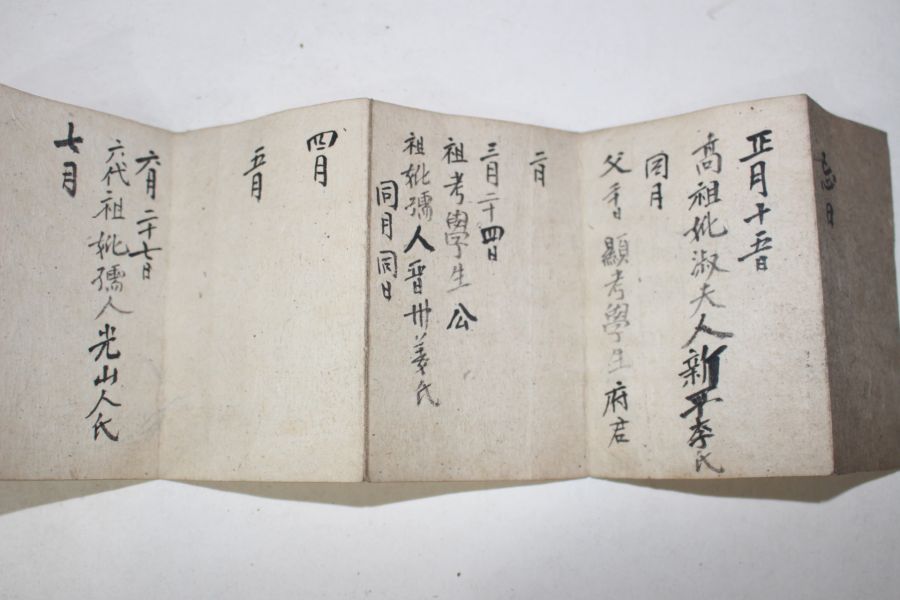 忘日
正月十五日
高祖妣淑夫人新平李氏
同月
父 顯考學生府君
二月
三月二十四日
祖考學生公
祖妣孺人晋州姜氏
同月同日
四月
五月
六月二十七日
六代祖妣孺人光山人氏
七月